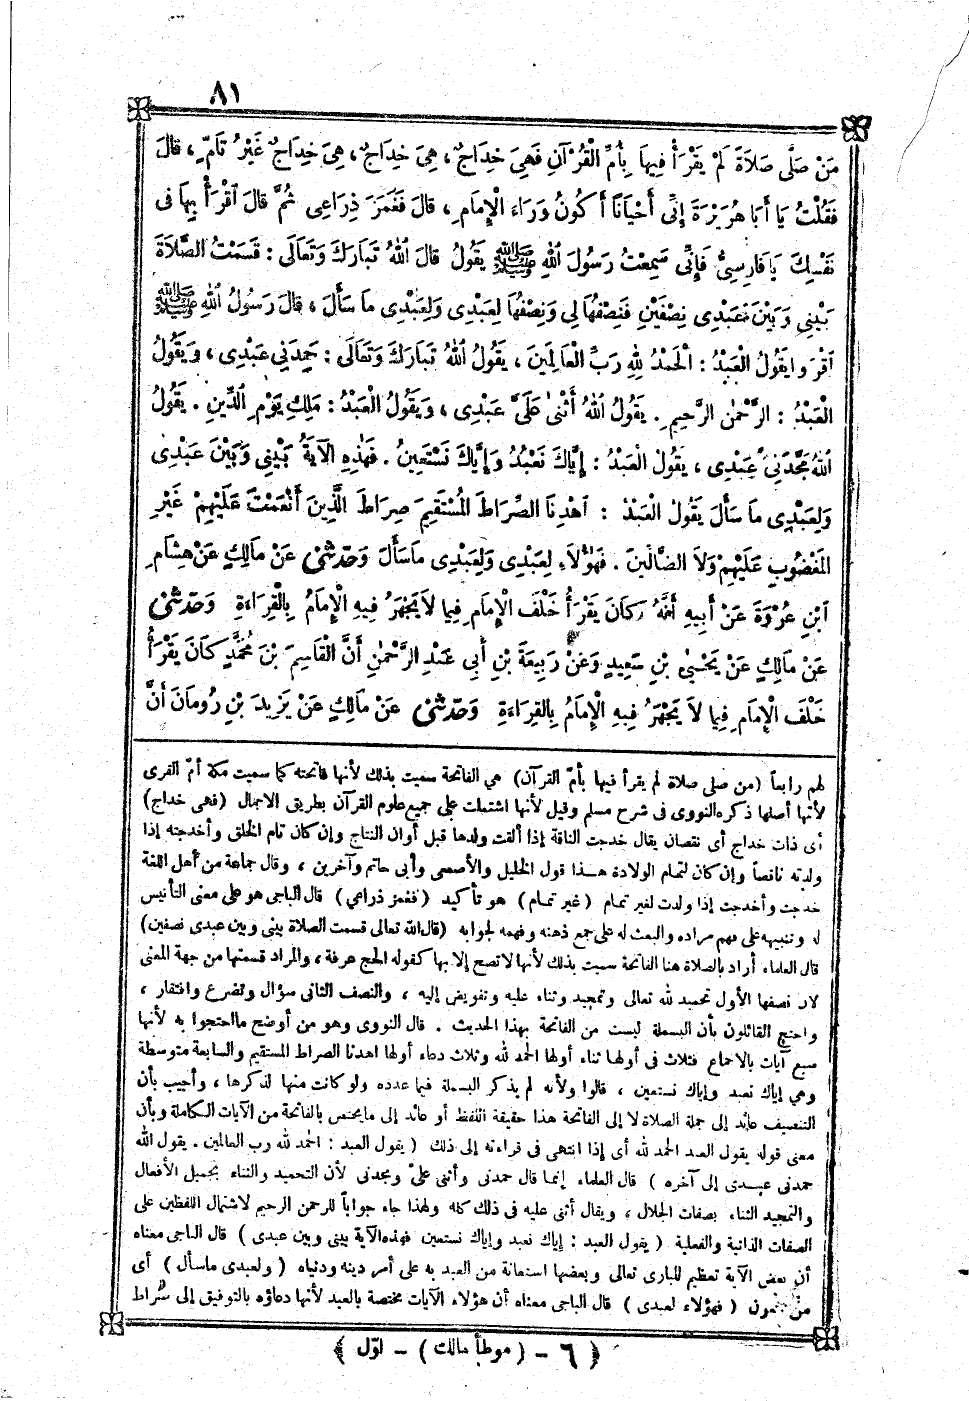 ٨١
مَنْ صَلَّى صَلَاةً لَمْ يَقْرَأْ فِيهَا بِأُمِّ الْقُرْآنِ فَهِيَ خِدَاجٌ ، هِيَ خِدَاجٌ ، هِيَ خِدَاجٌ غَيْرُ تَامٍّ ، قَالَ
فَقُلْتُ يَا أَبَا هُرَيْرَةَ إِنِّي أَحْيَانًا أَكُونُ وَرَاءَ الْإِمَامِ ، قَالَ فَغَمَزَ ذِرَاعِي ثُمَّ قَالَ اقْرَأْ بِهَا فِي
نَفْسِكَ يَا فَارِسِيُّ فَإِنِّي سَمِعْتُ رَسُولَ اللهِ ﷺ يَقُولُ قَالَ اللهُ تَبَارَكَ وَتَعَالَى : قَسَمْتُ الصَّلَاةَ
بَيْنِي وَبَيْنَ عَبْدِي نِصْفَيْنِ فَنِصْفُهَا لِي وَنِصْفُهَا لِعَبْدِي وَلِعَبْدِي مَا سَأَلَ ، قَالَ رَسُولُ اللهِ ﷺ
اقْرَءوا يَقُولُ الْعَبْدُ : الْحَمْدُ لِلهِ رَبِّ الْعَالَمِينَ ، يَقُولُ اللهُ تَبَارَكَ وَتَعَالَى : حَمِدَنِي عَبْدِي ، وَيَقُولُ
الْعَبْدُ : الرَّحْمٰنِ الرَّحِيمِ . يَقُولُ اللهُ أَثْنَى عَلَيَّ عَبْدِي ، وَيَقُولُ الْعَبْدُ : مَلِكِ يَوْمِ الدِّينِ . يَقُولُ
اللهُ مَجَّدَنِي عَبْدِي ، يَقُولُ الْعَبْدُ : إِيَّاكَ نَعْبُدُ وَإِيَّاكَ نَسْتَعِينُ . فَهٰذِهِ الْآيَةُ بَيْنِي وَبَيْنَ عَبْدِي
وَلِعَبْدِي مَا سَأَلَ يَقُولُ الْعَبْدُ : اهْدِنَا الصِّرَاطَ الْمُسْتَقِيمَ صِرَاطَ الَّذِينَ أَنْعَمْتَ عَلَيْهِمْ غَيْرِ
الْمَغْضُوبِ عَلَيْهِمْ وَلَا الضَّالِّينَ . فَهٰؤُلَاءِ لِعَبْدِي وَلِعَبْدِي مَا سَأَلَ وَحَدَّثَنِي عَنْ مَالِكٍ عَنْ هِشَامِ
ابْنِ عُرْوَةَ عَنْ أَبِيهِ أَنَّهُ كَانَ يَقْرَأُ خَلْفَ الْإِمَامِ فِيمَا لَا يَجْهَرُ فِيهِ الْإِمَامُ بِالْقِرَاءَةِ وَحَدَّثَنِي
عَنْ مَالِكٍ عَنْ يَحْيَى بْنِ سَعِيدٍ وَعَنْ رَبِيعَةَ بْنِ أَبِي عَبْدِ الرَّحْمٰنِ أَنَّ الْقَاسِمَ بْنَ مُحَمَّدٍ كَانَ يَقْرَأُ
خَلْفَ الْإِمَامِ فِيمَا لَا يَجْهَرُ فِيهِ الْإِمَامُ بِالْقِرَاءَةِ وَحَدَّثَنِي عَنْ مَالِكٍ عَنْ يَزِيدَ بْنِ رُومَانَ أَنَّ
لهم رابعاً (من صلى صلاة لم يقرأ فيها بأمّ القرآن) هي الفاتحة سميت بذلك لأنها فاتحته كما سميت مكة أمّ القرى
لأنها أصلها ذكره النووى فى شرح مسلم وقيل لأنها اشتملت على جميع علوم القرآن بطريق الاجمال (فهى خداج)
أى ذات خداج أى نقصان يقال خدجت الناقة إذا ألقت ولدها قبل أوان النتاج وإن كان تام الخلق وأخدجته إذا
ولدته ناقصاً وإن كان لتمام الولادة هذا قول الخليل والأصمعى وأبى حاتم وآخرين ، وقال جماعة من أهل اللغة
خدجت وأخدجت إذا ولدت لغير تمام (غير تمام) هو تأكيد (فغمز ذراعي) قال الباجى هو على معنى التأنيس
له وتنبيهه على فهم مراده والبعث له على جمع ذهنه وفهمه لجوابه (قال الله تعالى قسمت الصلاة بينى وبين عبدى نصفين)
قال العلماء أراد بالصلاة هنا الفاتحة سميت بذلك لأنها لا تصح إلا بها كقوله الحج عرفة ، والمراد قسمتها من جهة المعنى
لأن نصفها الأول تحميد لله تعالى وتمجيد وثناء عليه وتفويض إليه ، والنصف الثانى سؤال وتضرع وافتقار ،
واحتج القائلون بأن البسملة ليست من الفاتحة بهذا الحديث . قال النووى وهو من أوضح ما احتجوا به لأنها
سبع آيات بالاجماع فثلاث فى أولها ثناء أولها الحمد لله وثلاث دعاء أولها اهدنا الصراط المستقيم والسابعة متوسطة
وهي إياك نعبد وإياك نستعين ، قالوا ولأنه لم يذكر البسملة فيما عدده ولو كانت منها لذكرها ، وأجيب بأن
التنصيف عائد إلى جملة الصلاة لا إلى الفاتحة هذا حقيقة اللفظ أو عائد إلى ما يختص بالفاتحة من الآيات الكاملة وبأن
معنى قوله يقول العبد الحمد لله أى إذا انتهى فى قراءته إلى ذلك (يقول العبد : الحمد لله رب العالمين . يقول الله
حمدنى عبدى إلى آخره) قال العلماء إنما قال حمدنى وأثنى علىّ ومجدنى لأن التحميد والثناء بجميل الأفعال
والتمجيد الثناء بصفات الجلال ، ويقال أثنى عليه فى ذلك كله ولهذا جاء جواباً للرحمن الرحيم لاشتمال اللفظين على
الصفات الذاتية والفعلية (يقول العبد : إياك نعبد وإياك نستعين فهذه الآية بينى وبين عبدى) قال الباجى معناه
أن بعض الآية تعظيم للبارى تعالى وبعضها استعانة من العبد به على أمر دينه ودنياه (ولعبدى ما سأل) أى
(فهؤلاء لعبدى) قال الباجى معناه أن هؤلاء الآيات مختصة بالعبد لأنها دعاؤه بالتوفيق إلى صراط
﴿ ٦ – (موطأ مالك) – أوّل ﴾